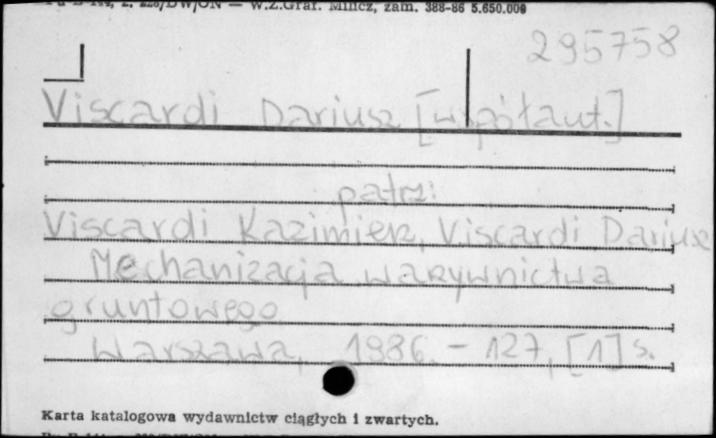 W.Z.Graf. Milicz, zam. 388-86 5.650.000
295758
Viscardi Dariusz [współaut.]
patrz:
Viscardi Kazimierz, Viscardi Dariusz
Mechanizacja warzywnictwa
gruntowego
Warszawa, 1986. - 127, [1] s.
Karta katalogowa wydawnictw ciągłych i zwartych.